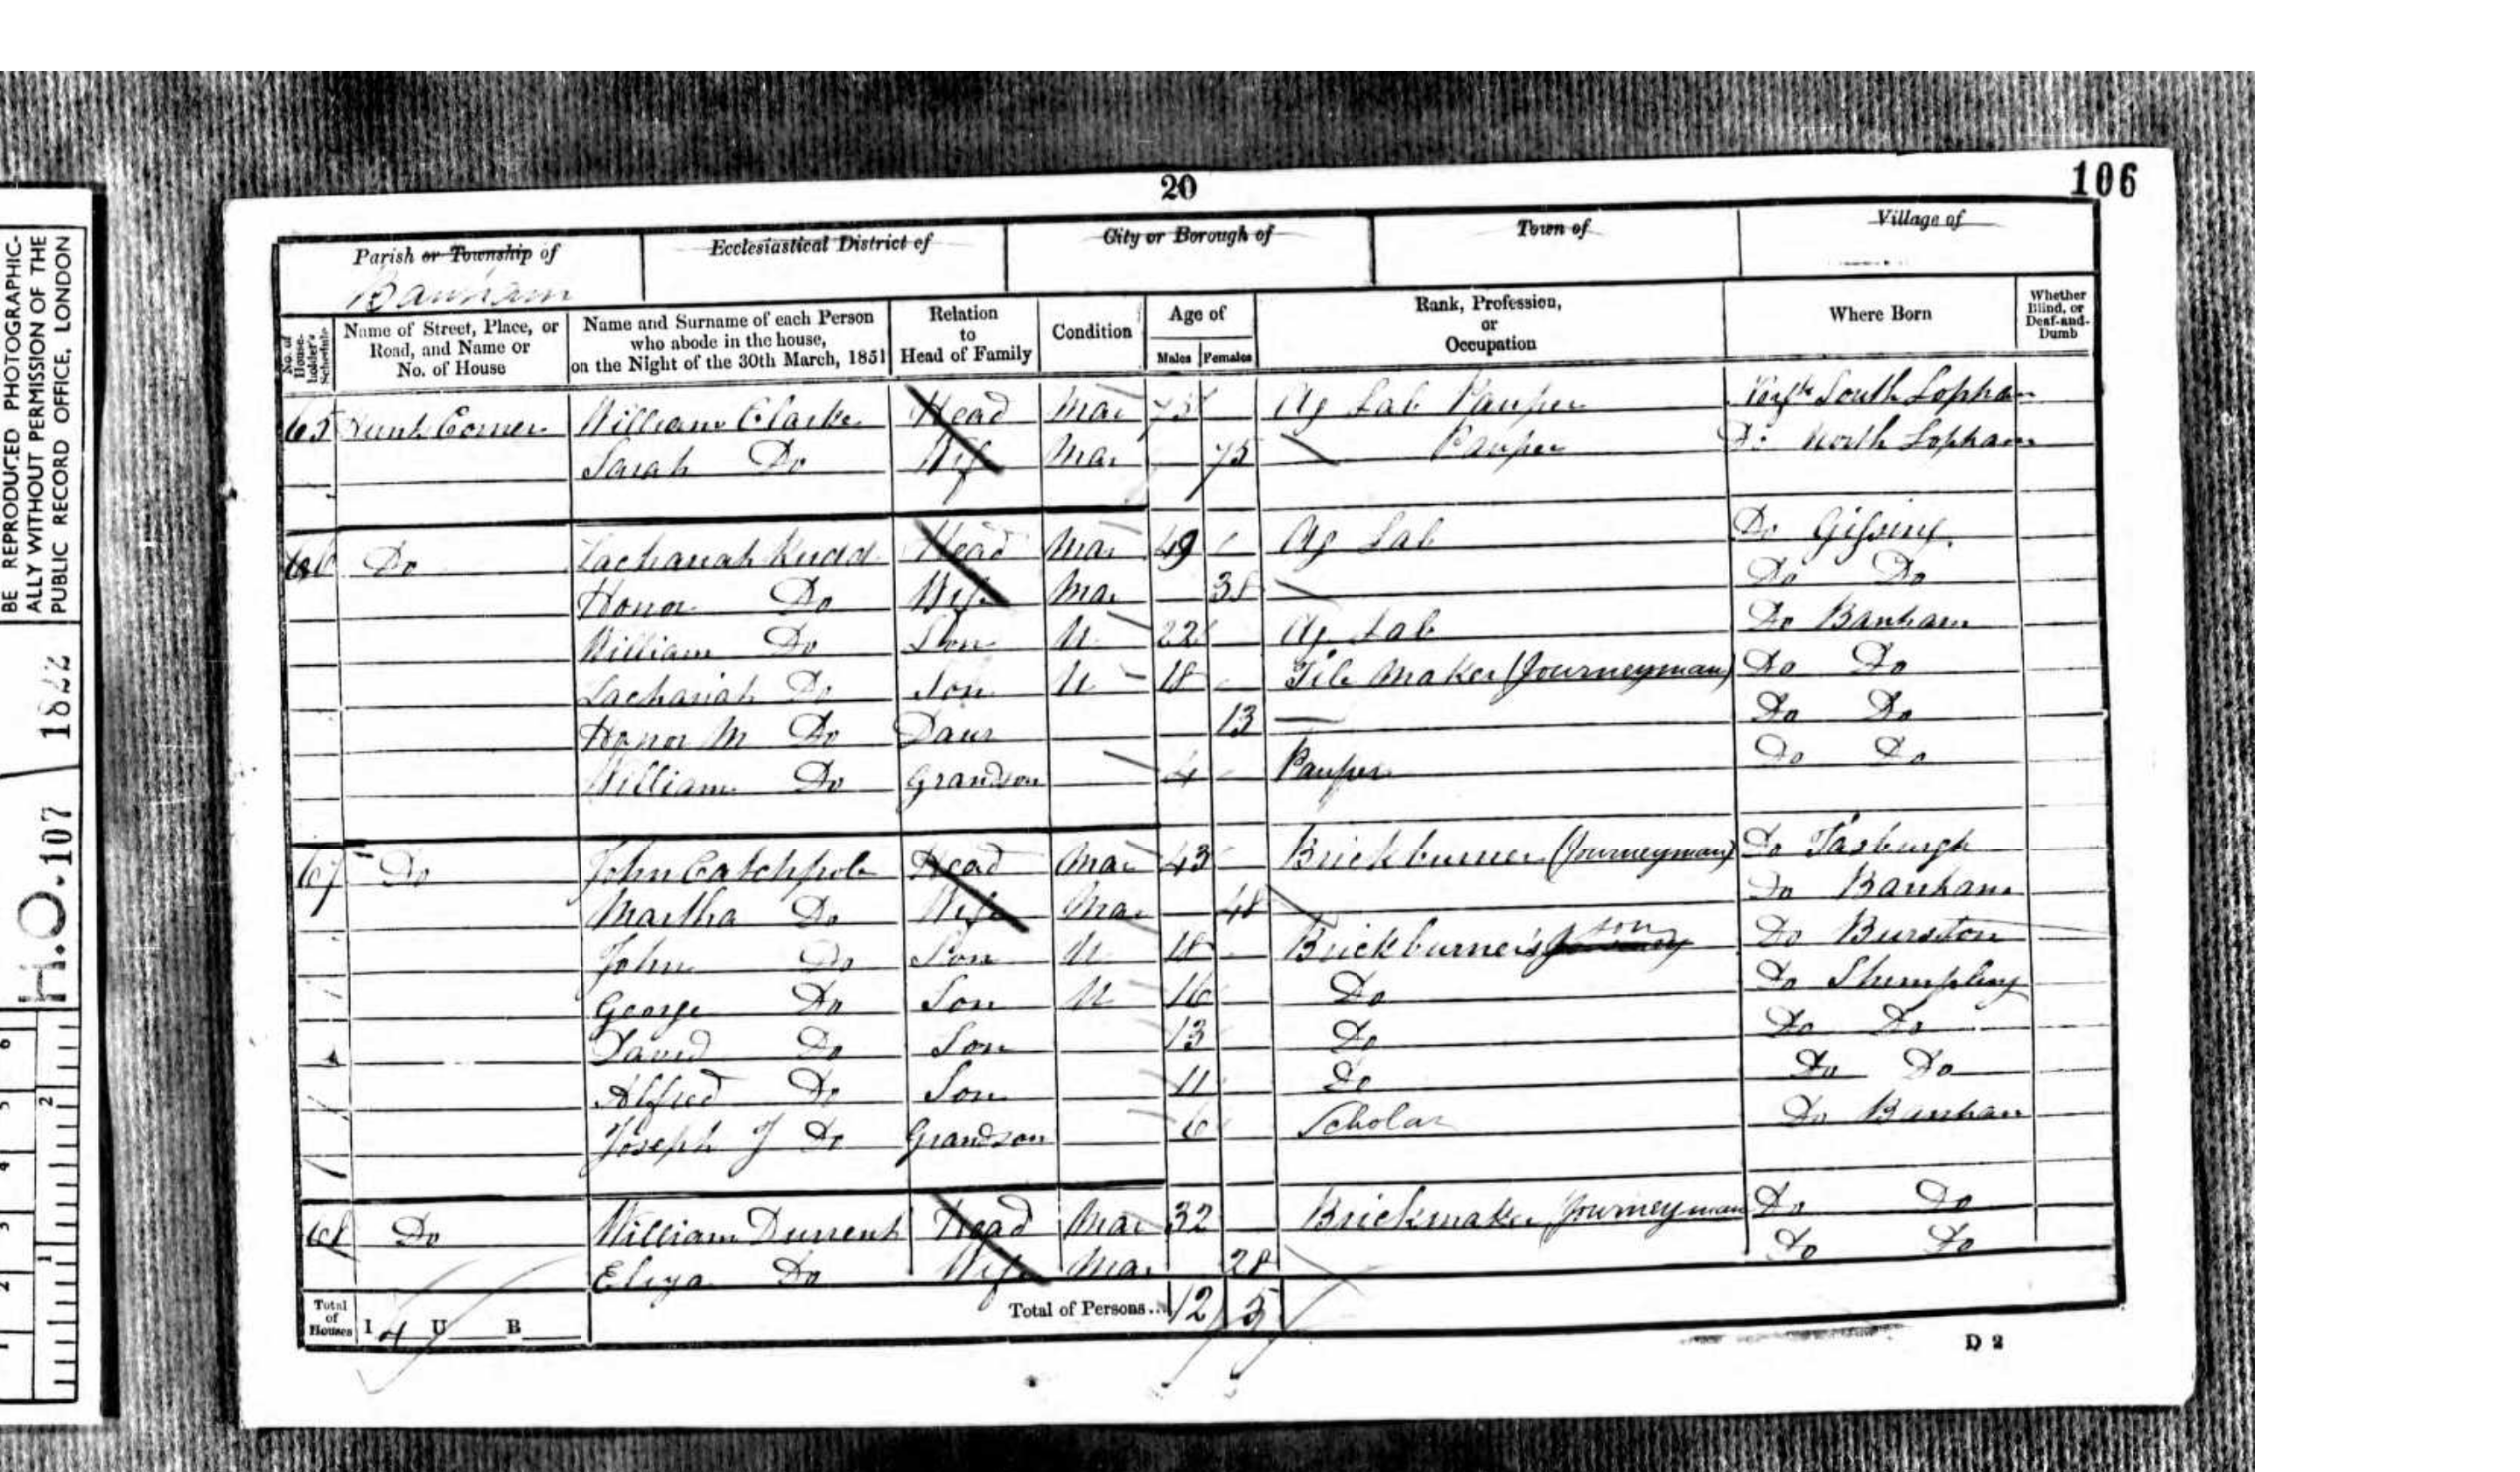 BE REPRODUCED PHOTOGRAPHIC-
ALLY WITHOUT PERMISSION OF THE
PUBLIC RECORD OFFICE, LONDON
H.O. 107
20
106
Parish or Township of
Banham
Ecclesiastical District of
City or Borough of
Town of
Village of
No. of House-holder's Schedule
Name of Street, Place, or Road, and Name or No. of House
Name and Surname of each Person who abode in the house, on the Night of the 30th March, 1851
Relation to Head of Family
Condition
Age of
Males Females
Rank, Profession, or Occupation
Where Born
Whether Blind, or Deaf-and-Dumb
65 Hunts Corner William Clarke Head Mar 75 Ag Lab Pauper South Lopham
Sarah Do Wife Mar 75 Pauper Do North Lopham
66 Do Zachariah Rudd Head Mar 49 Ag Lab Do Gissing
Honor Do Wife Mar 38 Do Do
William Do Son U 22 Ag Lab Do Banham
Zachariah Do Son U 18 Tile Maker (Journeyman) Do Do
Honor M Do Daur 13 Do Do
William Do Grandson 4 Pauper Do Do
67 Do John Catchpole Head Mar 43 Brickburner (Journeyman) Do Tasburgh
Martha Do Wife Mar 48 Do Banham
John Do Son U 18 Brickburner's son Do Burston
George Do Son U 16 Do Do Shimpling
David Do Son 13 Do Do Do
Alfred Do Son 11 Do Do Do
Joseph J Do Grandson 6 Scholar Do Banham
68 Do William Durrent Head Mar 32 Brickmaker Journeyman Do Do
Eliza Do Wife Mar 28 Do Do
Total of Houses I 4 U B Total of Persons... 12 5
D 2